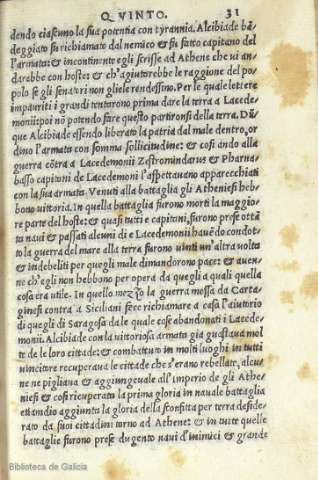 QVINTO. 31
dendo ciascuno la sua potentia con tyrannia. Alcibiade bã
deggiato fu richiamato dal nemico & fu fatto capitano del
l'armata: & incontinente egli scrisse ad Athene che vi an
darebbe con hoste: & ch'agiutorebbe le raggione del po
polo se gli senatori non gliele rendessino. Per le quale lettere
impauriti i grandi tentorono prima dare la terra a Lacede
monii: poi nõ potendo fare questo partironsi della terra. Dũ
que Alcibiade essendo liberato la patria dal male dentro, or
dino l'armata con somma sollicitudine: & cosi ando alla
guerra cõtra a Lacedemonii Zestromindarus & Pharna-
basso capitoni de Lacedemoni l'aspettauano apparecchiati
con la sua armata. Venuti alla battaglia gli Atheniesi heb-
bono vittoria. In quella battaglia furono morti la maggio-
re parte del hoste: & quasi tutti e capitoni, furono prese ottã
ta naui & passati alcuni di e Lacedemonii hauẽdo condot-
to la guerra del mare alla terra furono vinti un'altra volta
& indebeliti per quegli male dimandorono pace: & auen-
ne ch'egli non hebbono per opera da quegli a quali quella
cosa era utile. In quello mezzo la guerra mossa da Carta-
ginesi contra a Siciliani fece richiamare a casa l'aiutorio
di quegli di Saragosa dale quale cose abandonati i Lacede-
monii. Alcibiade con la vittoriosa armata gia guastaua mol
te de le loro cittade: & combattuto in molti luoghi in tutti
uincitore recuperaua le cittade che s'erano rebellate, alcu-
ne ne pigliaua & aggiungeuale all'Imperio de gli Athe-
niesi & cosi ricuperato la prima gloria in nauale battaglia
ettandio aggiunta la gloria della sconfitta per terra deside-
rato da suoi cittadini torno ad Athene: & in tutte quelle
battaglie furono prese dugento naui d'inimici & grande
Biblioteca de Galicia